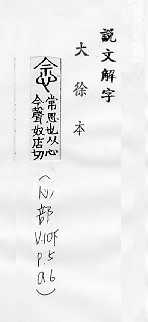 説文解字
大徐本
念
常思也从心
今聲奴店切
(心部
V.10F
P.5
a.6)